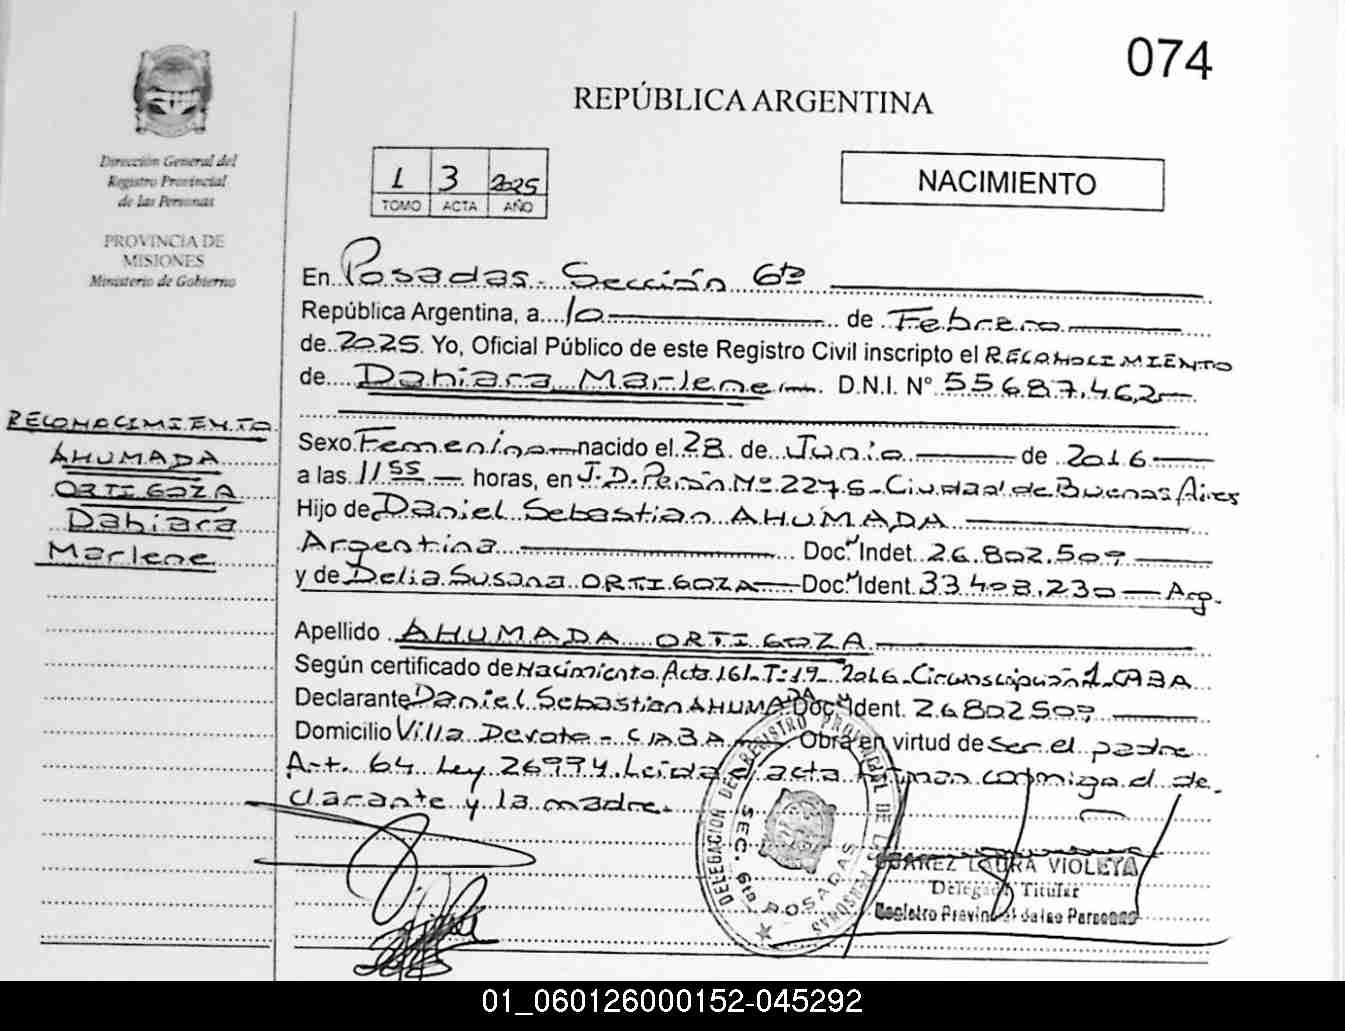 074
REPÚBLICA ARGENTINA
Dirección General del
Registro Provincial
de las Personas
PROVINCIA DE
MISIONES
Ministerio de Gobierno
1 3 2025
TOMO ACTA AÑO
NACIMIENTO
En Posadas - Sección 6ta
República Argentina, a 10 de Febrero
de 2025. Yo, Oficial Público de este Registro Civil inscripto el RECONOCIMIENTO
de Dahiara Marlene D.N.I. N° 55.687.462
RECONOCIMIENTO
AHUMADA
ORTIGOZA
Dahiara
Marlene
Sexo Femenino nacido el 28 de Junio de 2016
a las 11 55 horas, en J.D. Perón Nº 2275 - Ciudad de Buenos Aires
Hijo de Daniel Sebastian AHUMADA
Argentina Doc. Indet. 26.802.509
y de Delia Susana ORTIGOZA Doc. Ident. 33.408.230 Arg.
Apellido AHUMADA ORTIGOZA
Según certificado de Nacimiento Acta 161-T:19-2016-Circunscripción 1-CABA
Declarante Daniel Sebastian AHUMADA Doc. Ident. 26802509
Domicilio Villa Devoto - CABA Obra en virtud de ser el padre
Art. 64 Ley 26994. Leída el acta firman conmigo el de
clarante y la madre.
DELEGACIÓN DEL REGISTRO PROVINCIAL DE LAS PERSONAS
SEC. 6ta POSADAS
SUAREZ LAURA VIOLETA
Delegada Titular
Registro Provincial de las Personas
01_060126000152-045292